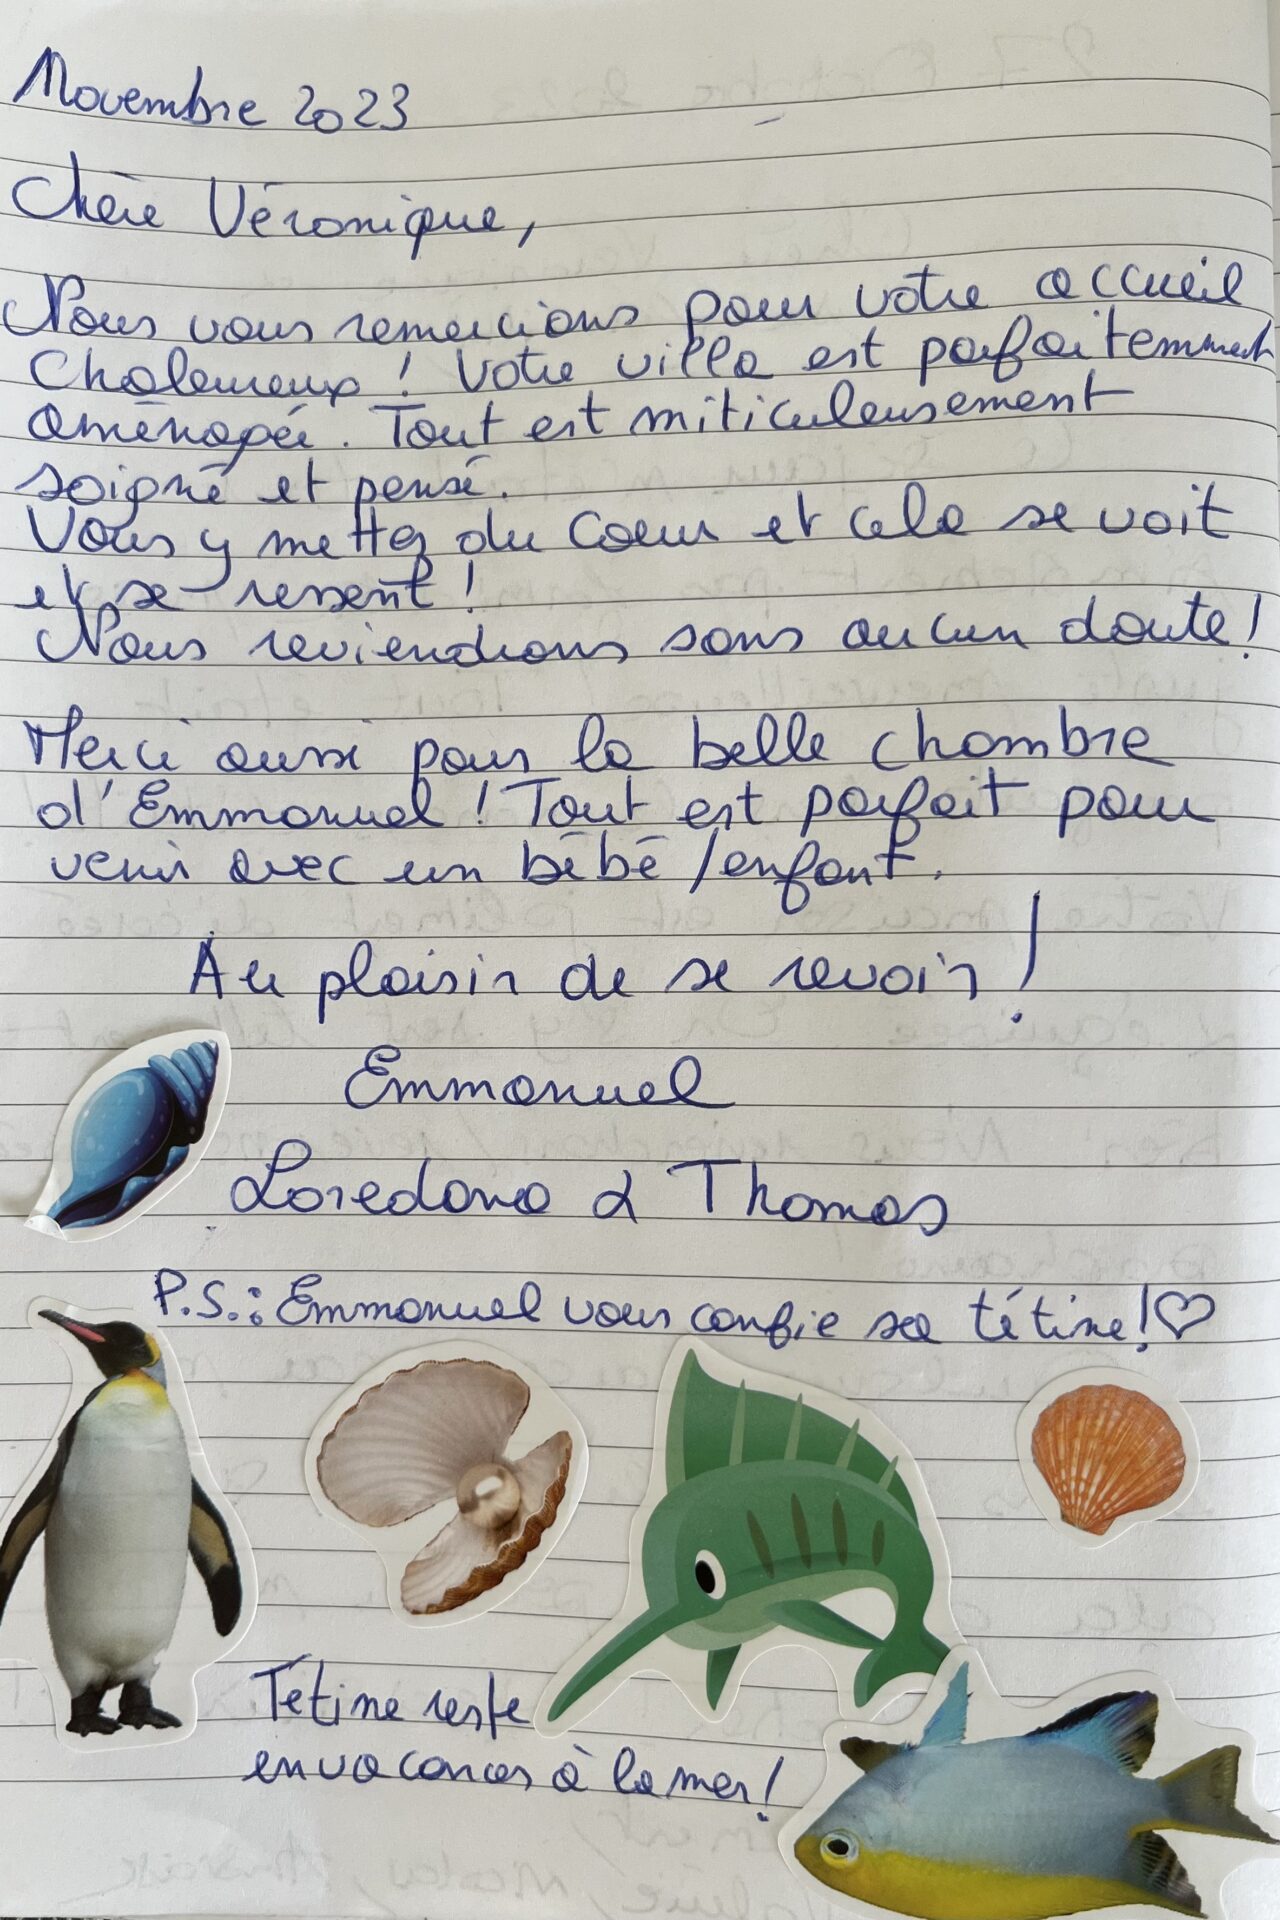 Novembre 2023
Chère Véronique,
Nous vous remercions pour votre accueil
Chaleureux ! Votre villa est parfaitemment
aménagée. Tout est miticuleusement
soigné et pensé.
Vous y mettez du Coeur et cela se voit
et se ressent !
Nous reviendrons sans aucun doute !
Merci aussi pour la belle chambre
d'Emmanuel ! Tout est parfait pour
venir avec un bébé / enfant.
Au plaisir de se revoir !
Emmanuel
Loredana & Thomas
P.S.: Emmanuel vous confie sa tétine ! ♡
Tétine reste
en vacances à la mer !